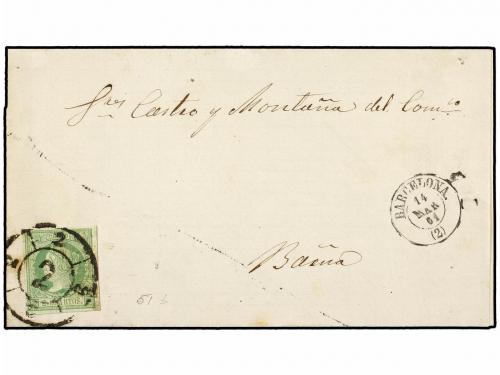 Sres Castro y Montaña del Comco
BARCELONA.
14
MAR
61
(2)
Baena
2
2
CUARTOS
51